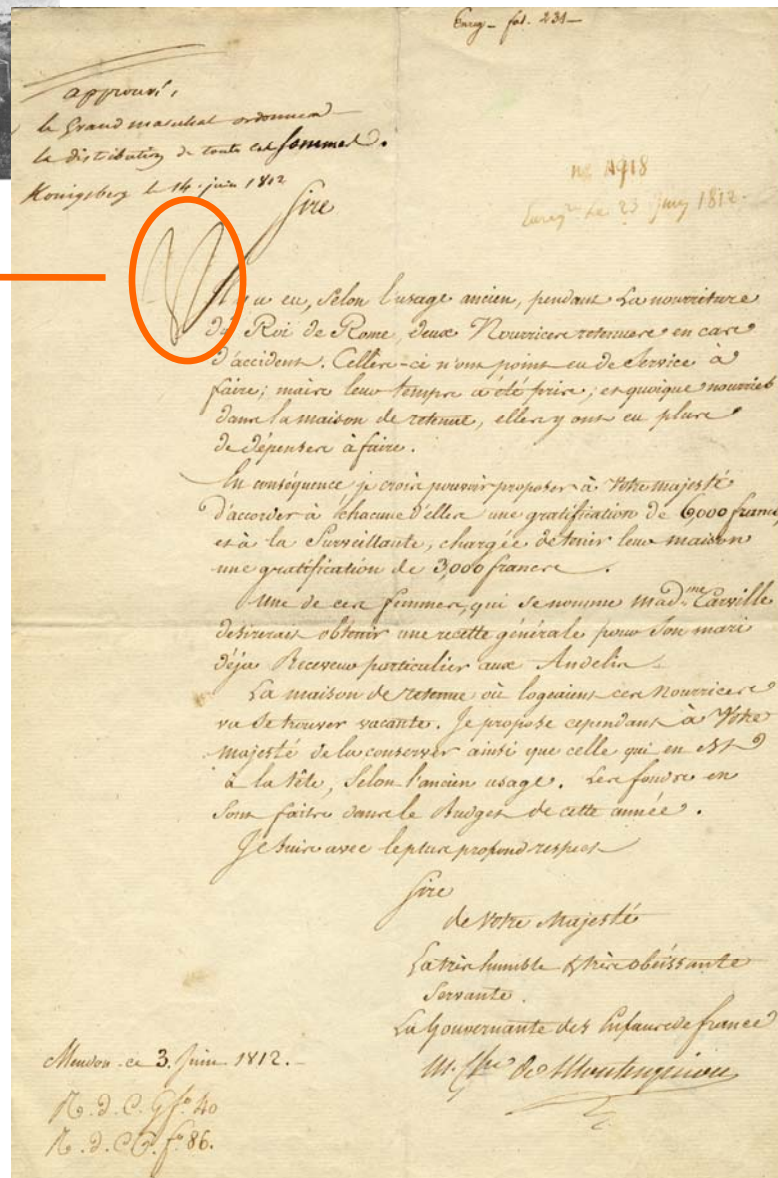 Enreg - fol. 231 -
approuvé,
le Grand maréchal ordonnera
la distribution de toute ces sommes.
Konigsberg le 14 juin 1812
n° 1918
Enreg le 23 Juin 1812.
Sire
Il y a eu, Selon l'usage ancien, pendant La nourriture
du Roi de Rome, deux Nourrices retenues en cas
d'accident. Celles-ci n'ont point eu de Service à
faire; mais leur temps a été pris; et quoique nourries
dans la maison de retenue, elles y ont eu plus
de dépenses à faire.
En conséquence je crois pouvoir proposer à Votre majesté
d'accorder à chacune d'elles une gratification de 6,000 francs
et à la Surveillante, chargée de tenir leur maison
une gratification de 3,000 francs.
Une de ces femmes, qui se nomme mad.me Carville
desirerait obtenir une recette générale pour Son mari
déja Receveur particulier aux Andelis.
La maison de retenue où logeaient ces Nourrices
va se trouver vacante. Je propose cependant à Votre
majesté de la conserver ainsi que celle qui en est
à la tête, Selon l'ancien usage. Les fonds en
Sont faits dans le Budget de cette année.
Je Suis avec le plus profond respect
Sire
de Votre Majesté
La très humble & très obéissante
Servante.
La Gouvernante des Enfans de france
M. Ctsse de Montesquiou
Meudon ce 3. Juin 1812.
R. d. C. G f° 40
R. d. C. f° 86.